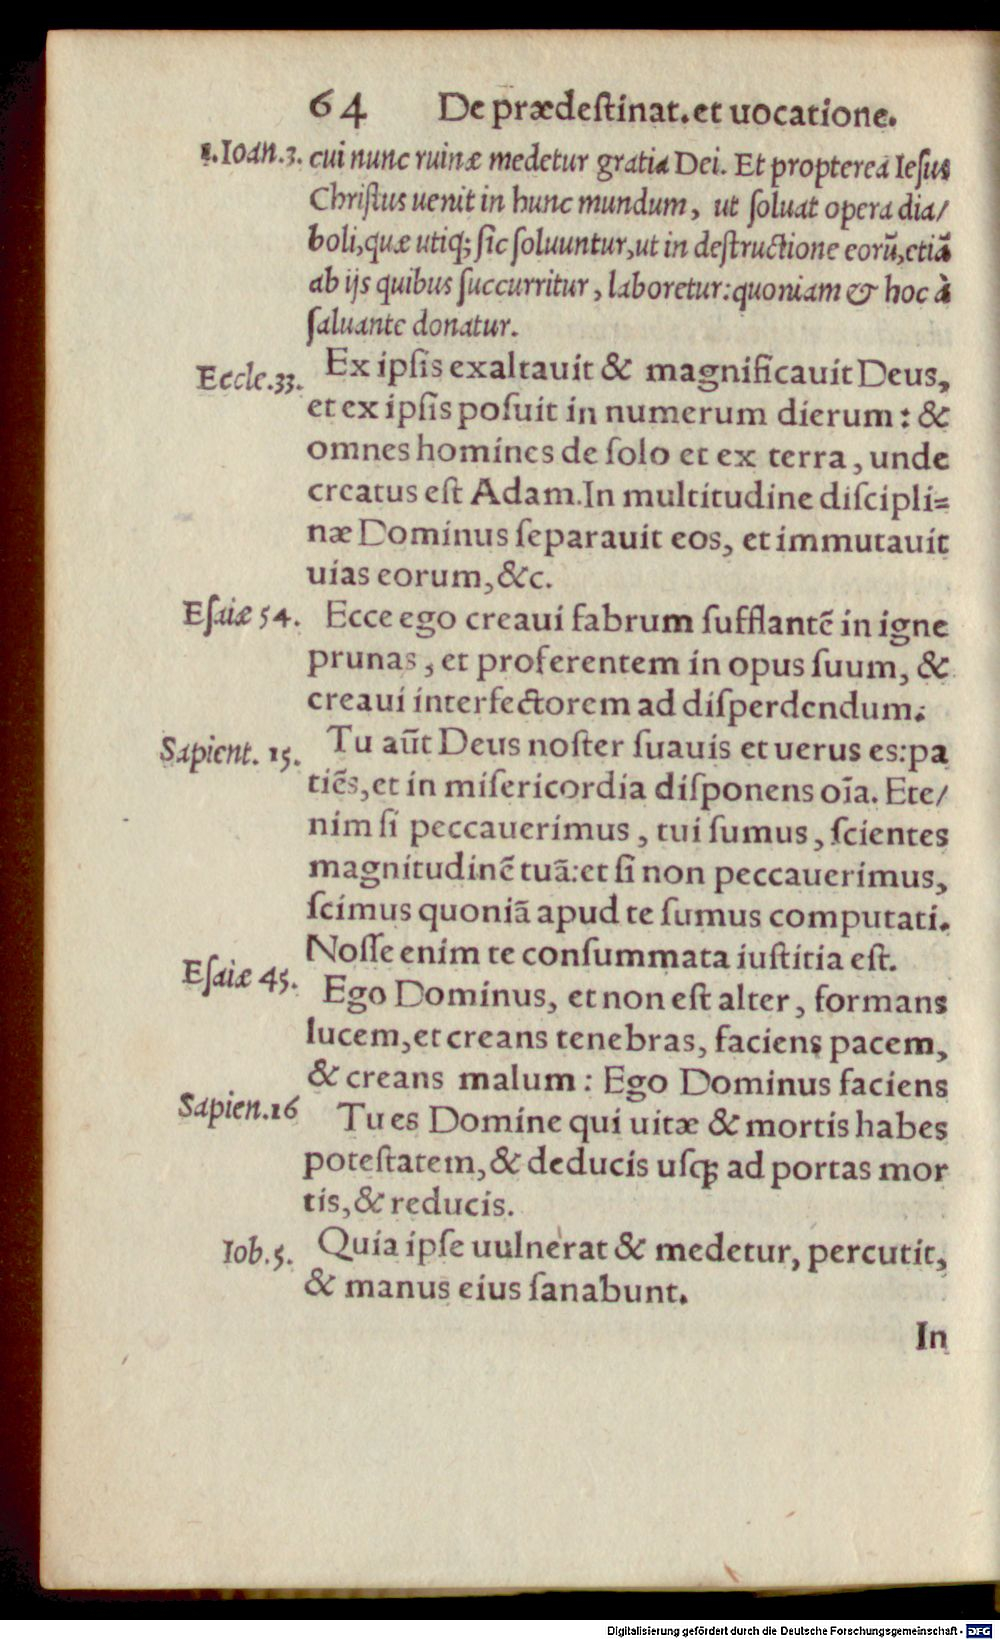 64 De prædeſtinat. et uocatione.
1. Ioan. 3. cui nunc ruinæ medetur gratia Dei. Et propterea Ieſus
Chriſtus uenit in hunc mundum, ut ſoluat opera dia/
boli, quæ utiq; ſic ſoluuntur, ut in deſtructione eorũ, etiã
ab ijs quibus ſuccurritur, laboretur: quoniam & hoc à
ſaluante donatur.
Eccle. 33. Ex ipſis exaltauit & magnificauit Deus,
et ex ipſis poſuit in numerum dierum: &
omnes homines de ſolo et ex terra, unde
creatus eſt Adam. In multitudine diſcipli=
næ Dominus ſeparauit eos, et immutauit
uias eorum, &c.
Eſaiæ 54. Ecce ego creaui fabrum ſufflantẽ in igne
prunas, et proferentem in opus ſuum, &
creaui interfectorem ad diſperdendum.
Sapient. 15. Tu aũt Deus noſter ſuauis et uerus es: pa
tiẽs, et in miſericordia diſponens oĩa. Ete/
nim ſi peccauerimus, tui ſumus, ſcientes
magnitudinẽ tuã: et ſi non peccauerimus,
ſcimus quoniã apud te ſumus computati.
Noſſe enim te conſummata iuſtitia eſt.
Eſaiæ 45. Ego Dominus, et non eſt alter, formans
lucem, et creans tenebras, faciens pacem,
& creans malum: Ego Dominus faciens
Sapien. 16 Tu es Domine qui uitæ & mortis habes
poteſtatem, & deducis uſq; ad portas mor
tis, & reducis.
Iob. 5. Quia ipſe uulnerat & medetur, percutit,
& manus eius ſanabunt.
In
Digitalisierung gefördert durch die Deutsche Forschungsgemeinschaft - DFG